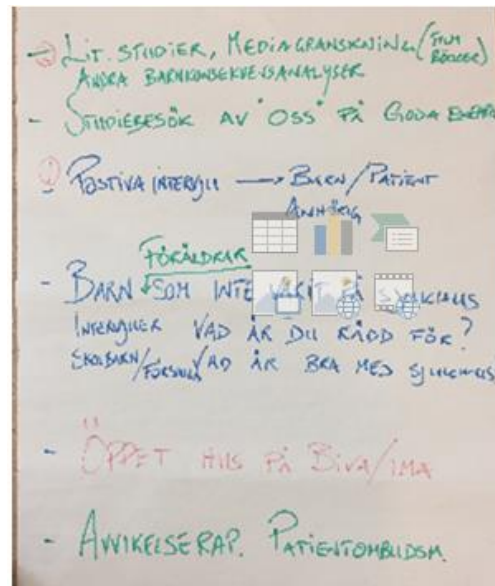 - Lit. STUDIER, MEDIAGRANSKNING (FILM BÖCKER)
ANDRA BARNKONSEKVENSANALYSER
- STUDIEBESÖK AV "OSS" PÅ GODA EXEMP
- POSTIVA INTERVJU → BARN/PATIENT
ANHÖRIG
FÖRÄLDRAR
- BARN ↓ SOM INTE VARIT PÅ SJUKHUS
INTERVJUER VAD ÄR DU RÄDD FÖR?
SKOLBARN/FÖRSKOLA VAD ÄR BRA MED SJUKHUS
- ÖPPET HUS PÅ BIVA/IMA
- AVVIKELSERAP. PATIENTOMBUDSM.